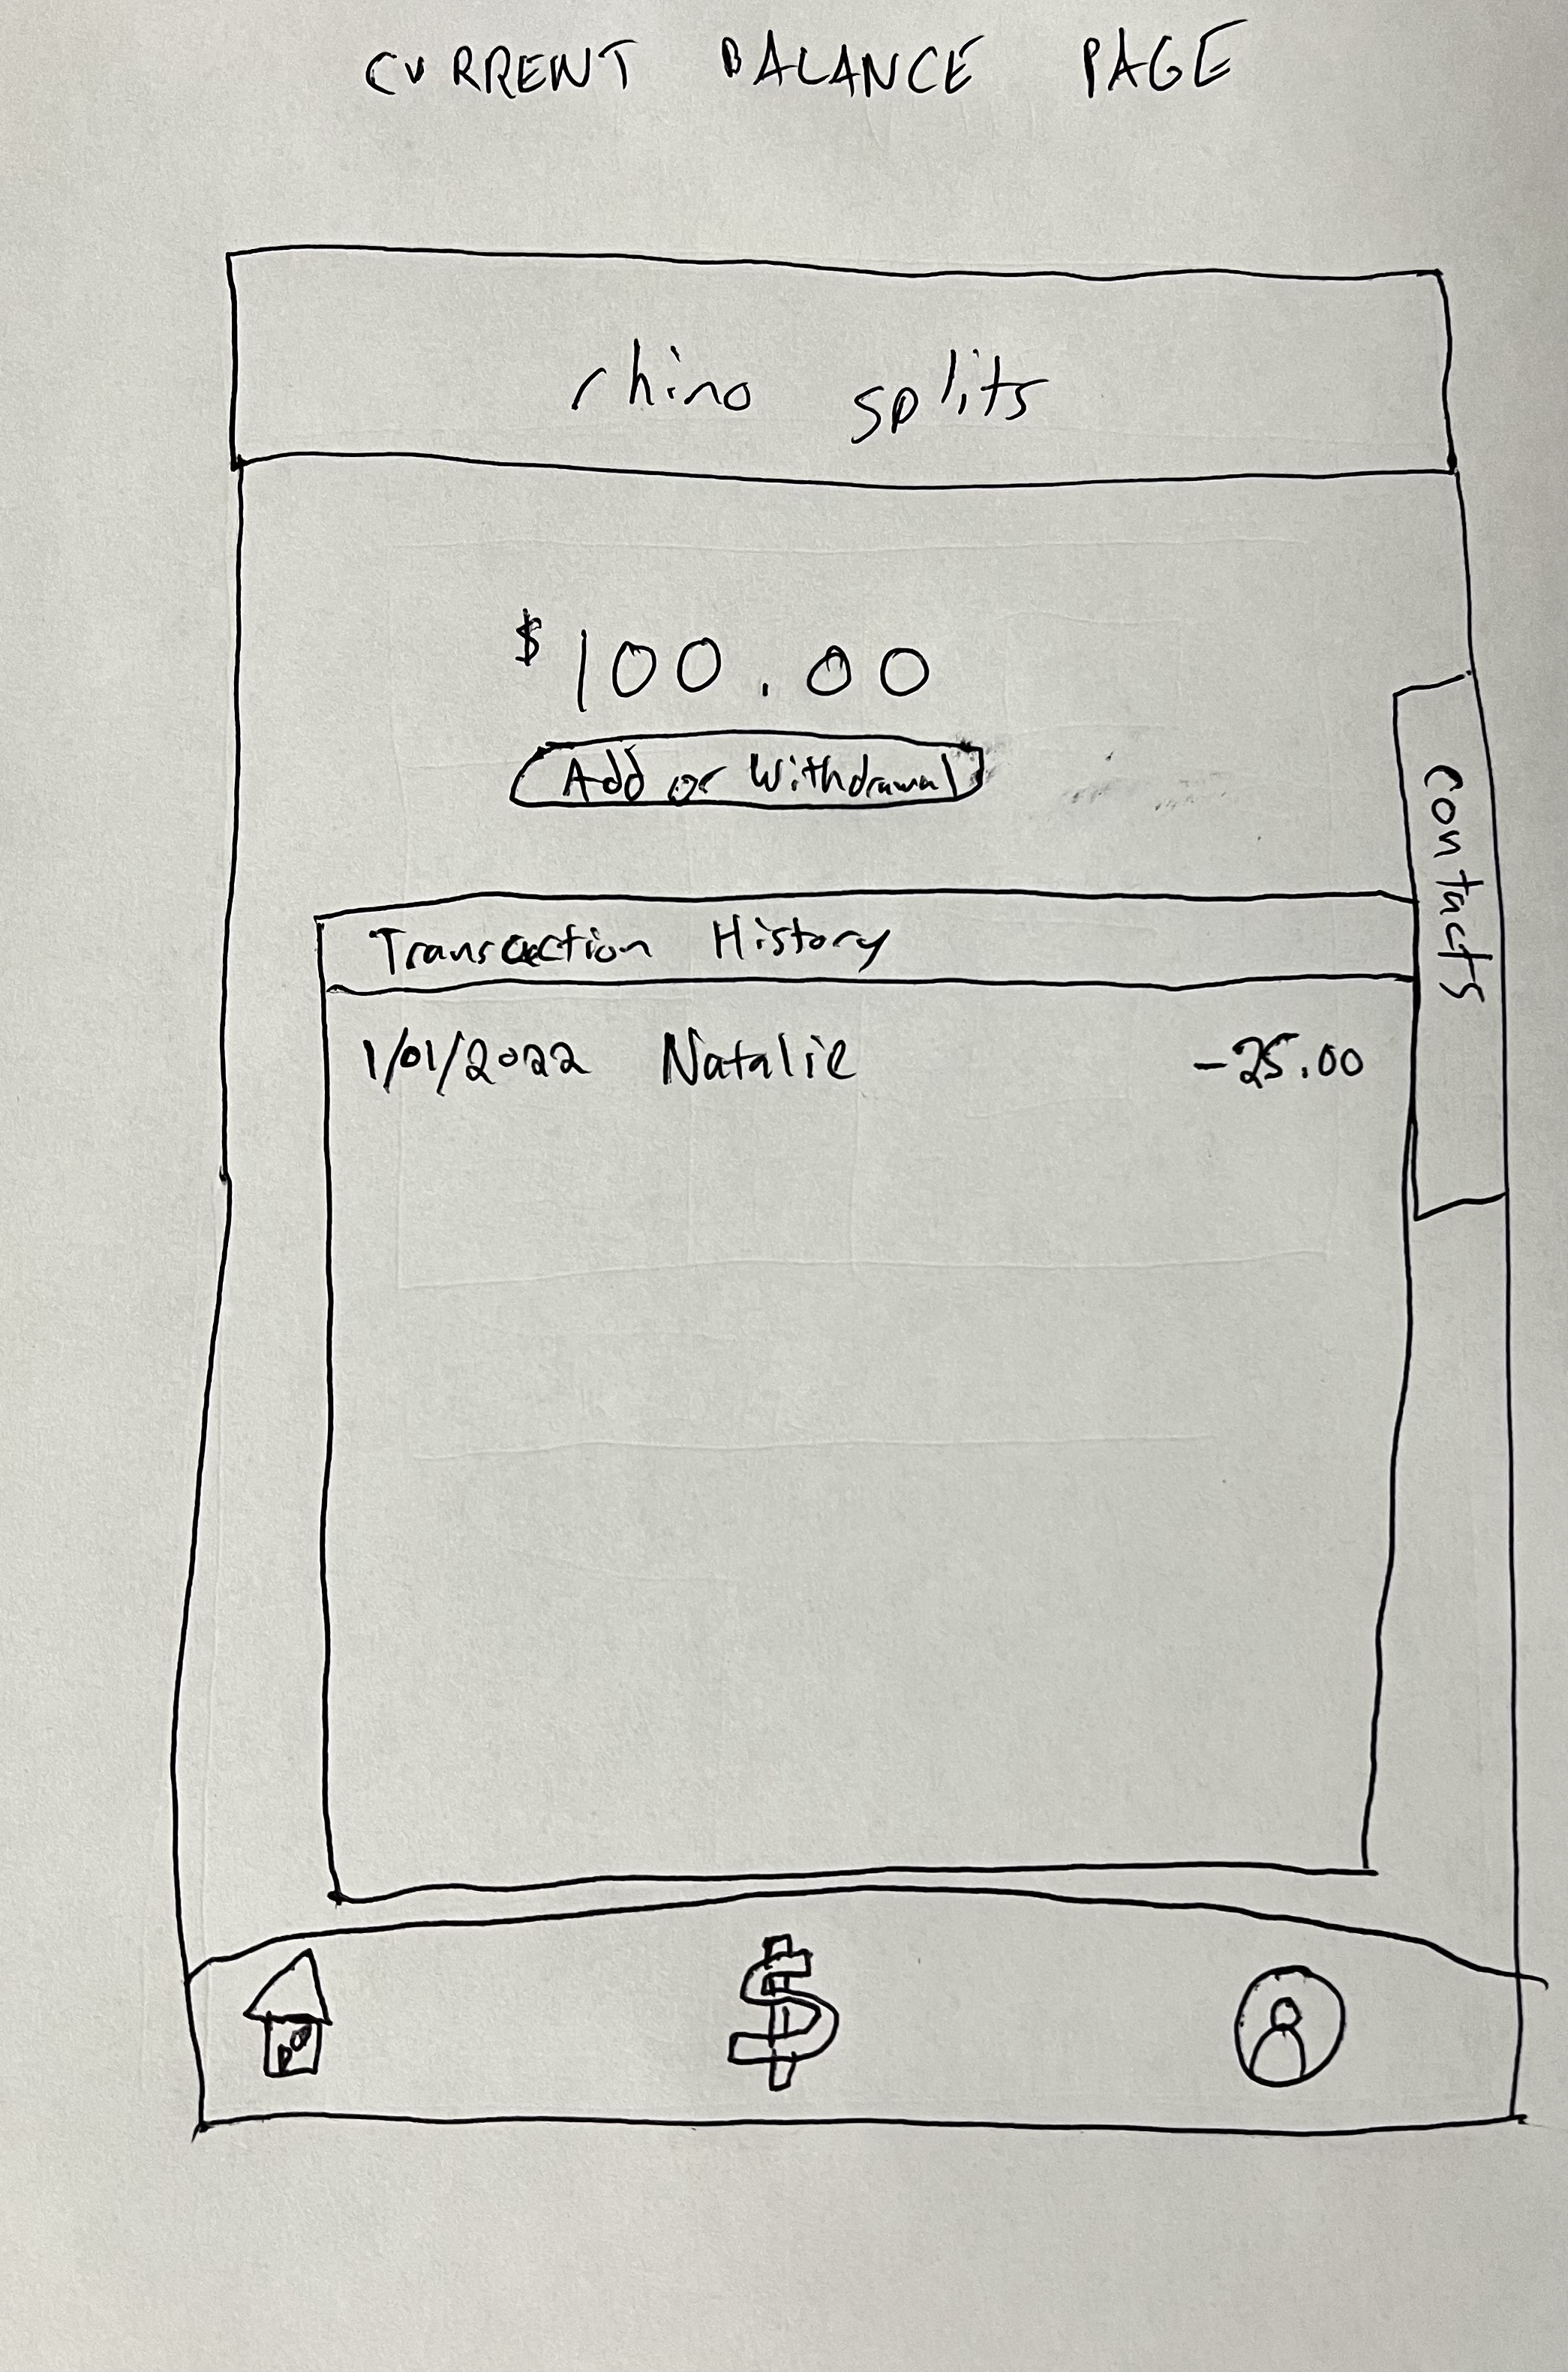 CURRENT BALANCE PAGE
rhino splits
$100.00
Add or Withdrawal
contacts
Transaction History
1/01/2022 Natalie -25.00
$